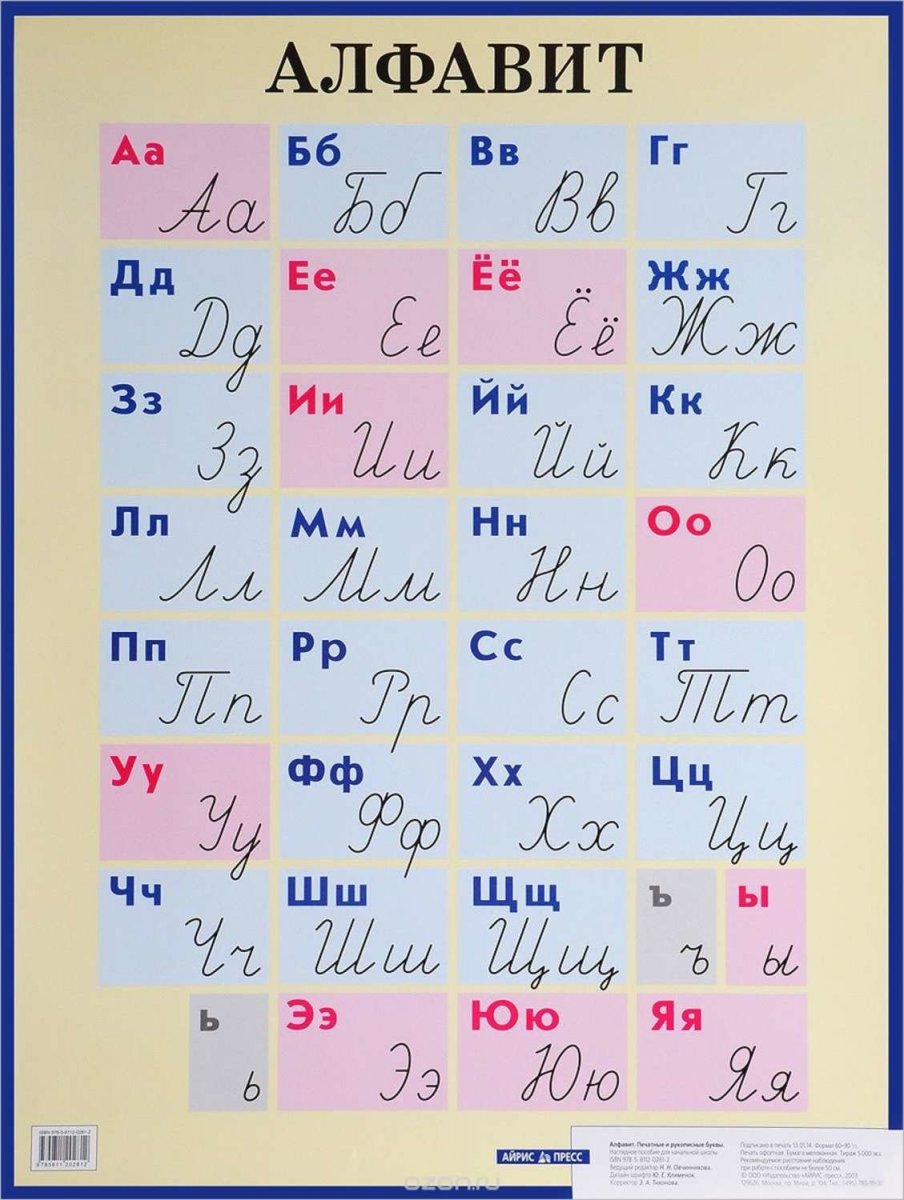 АЛФАВИТ
Аа Бб Вв Гг
Аа Бб Вв Гг
Дд Ее Ёё Жж
Дд Ее Ёё Жж
Зз Ии Йй Кк
Зз Ии Йй Кк
Лл Мм Нн Оо
Лл Мм Нн Оо
Пп Рр Сс Тт
Пп Рр Сс Тт
Уу Фф Хх Цц
Уу Фф Хх Цц
Чч Шш Щщ ъ ы
Чч Шш Щщ ъ ы
ь Ээ Юю Яя
ь Ээ Юю Яя
ISBN 978-5-8112-0281-2
9785811202812
АЙРИС ПРЕСС
Алфавит. Печатные и рукописные буквы.
Наглядное пособие для начальной школы
ISBN 978-5-8112-0281-2
Ведущий редактор Н. Н. Овчинникова
Дизайн шрифта Ю. Е. Клименюк
Корректор З. А. Тихонова
Подписано в печать 13.01.14. Формат 60×90
Печать офсетная. Бумага мелованная. Тираж 5 000 экз.
Рекомендуемое расстояние наблюдения
при работе с пособием не более 50 см.
© ООО «Издательство «АЙРИС-пресс», 2003
129626, Москва, пр. Мира, д. 104
ozon.ru